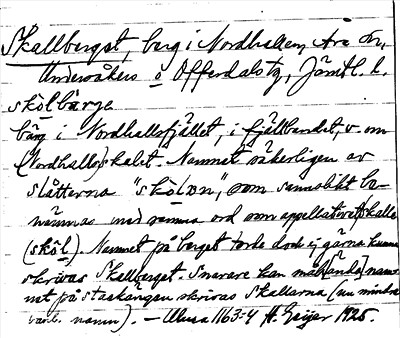 Skallberget, berg i Nordhallen, Åre sn,
Undersåkers o Offerdals tg, Jämtl. l.
skölbärʒe
bärg i Nordhallsfjället, i fjällbandet, v. om
(Nordhalls)skalet. Namnet säkerligen av
slåtterna "skölɔn", som sannolikt be-
nämnas med samma ord som appellativet skalle
(sköl). Namnet på berget torde dock ej gärna kunna
skrivas Skallberget. Snarare kan man
net på slåskängen skrivas Skallarna (nu mindre
vanl. namn). – Ulma 1163:4 H. Geijer 1925.